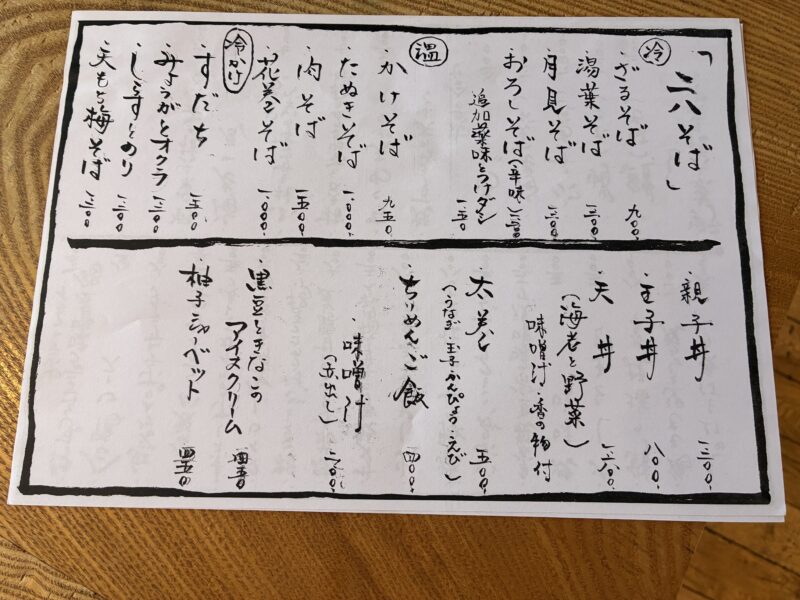 「二八そば」
冷
・ざるそば 九〇〇
・湯葉そば
・月見そば
・おろしそば(辛味)
追加薬味とつけダシ 一五〇
温
・かけそば 九五〇
・たぬきそば 一、〇〇〇
・肉そば 一、五〇〇
・花巻そば 一、〇〇〇
冷かけ
・すだち
・みょうがとオクラ 一、三〇〇
・しらすとのり 一、三〇〇
・天もち梅そば 一、三〇〇
・親子丼 一、三〇〇
・玉子丼 八〇〇
・天丼
(海老と野菜)
味噌汁・香の物付
・太巻 五〇〇
(うなぎ・玉子・かんぴょう・えび)
・ちりめんご飯 四〇〇
・味噌汁
(赤出し)
・黒豆ときなこの
アイスクリーム 四五〇
・柚子シャーベット 四五〇